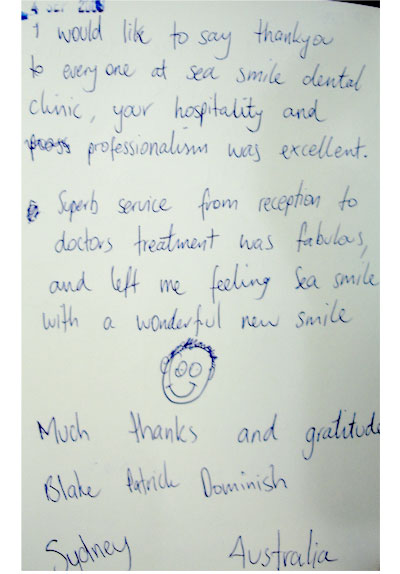 4 SEP 200
I would like to say thankyou
to everyone at sea smile dental
clinic, your hospitality and
professionalism was excellent.
Superb service from reception to
doctors treatment was fabulous,
and left me feeling Sea smile
with a wonderful new smile
Much thanks and gratitude
Blake Patrick Dominish
Sydney Australia